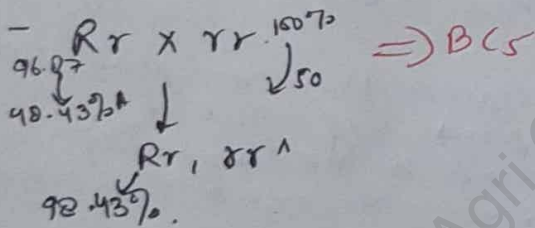 - Rr x rr 100% => BC5
96.87
48.43% 50
Rr, rr
98.43%.
Agri.